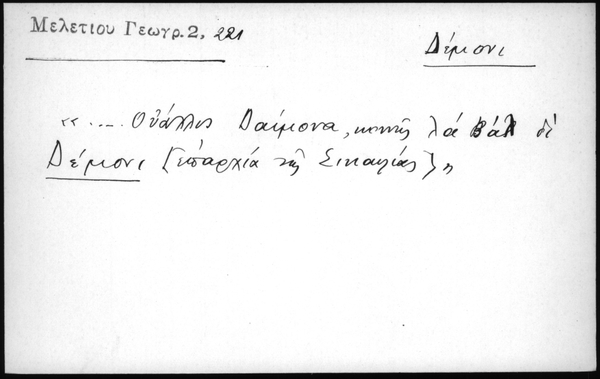 Μελετίου Γεωγρ. 2, 221
Δέμονι
«.... Οὐάλλις Δαίμονα, κοινῶς λὰ Βάλ δὶ
Δέμονι [ἐπαρχία τῆς Σικελίας]»